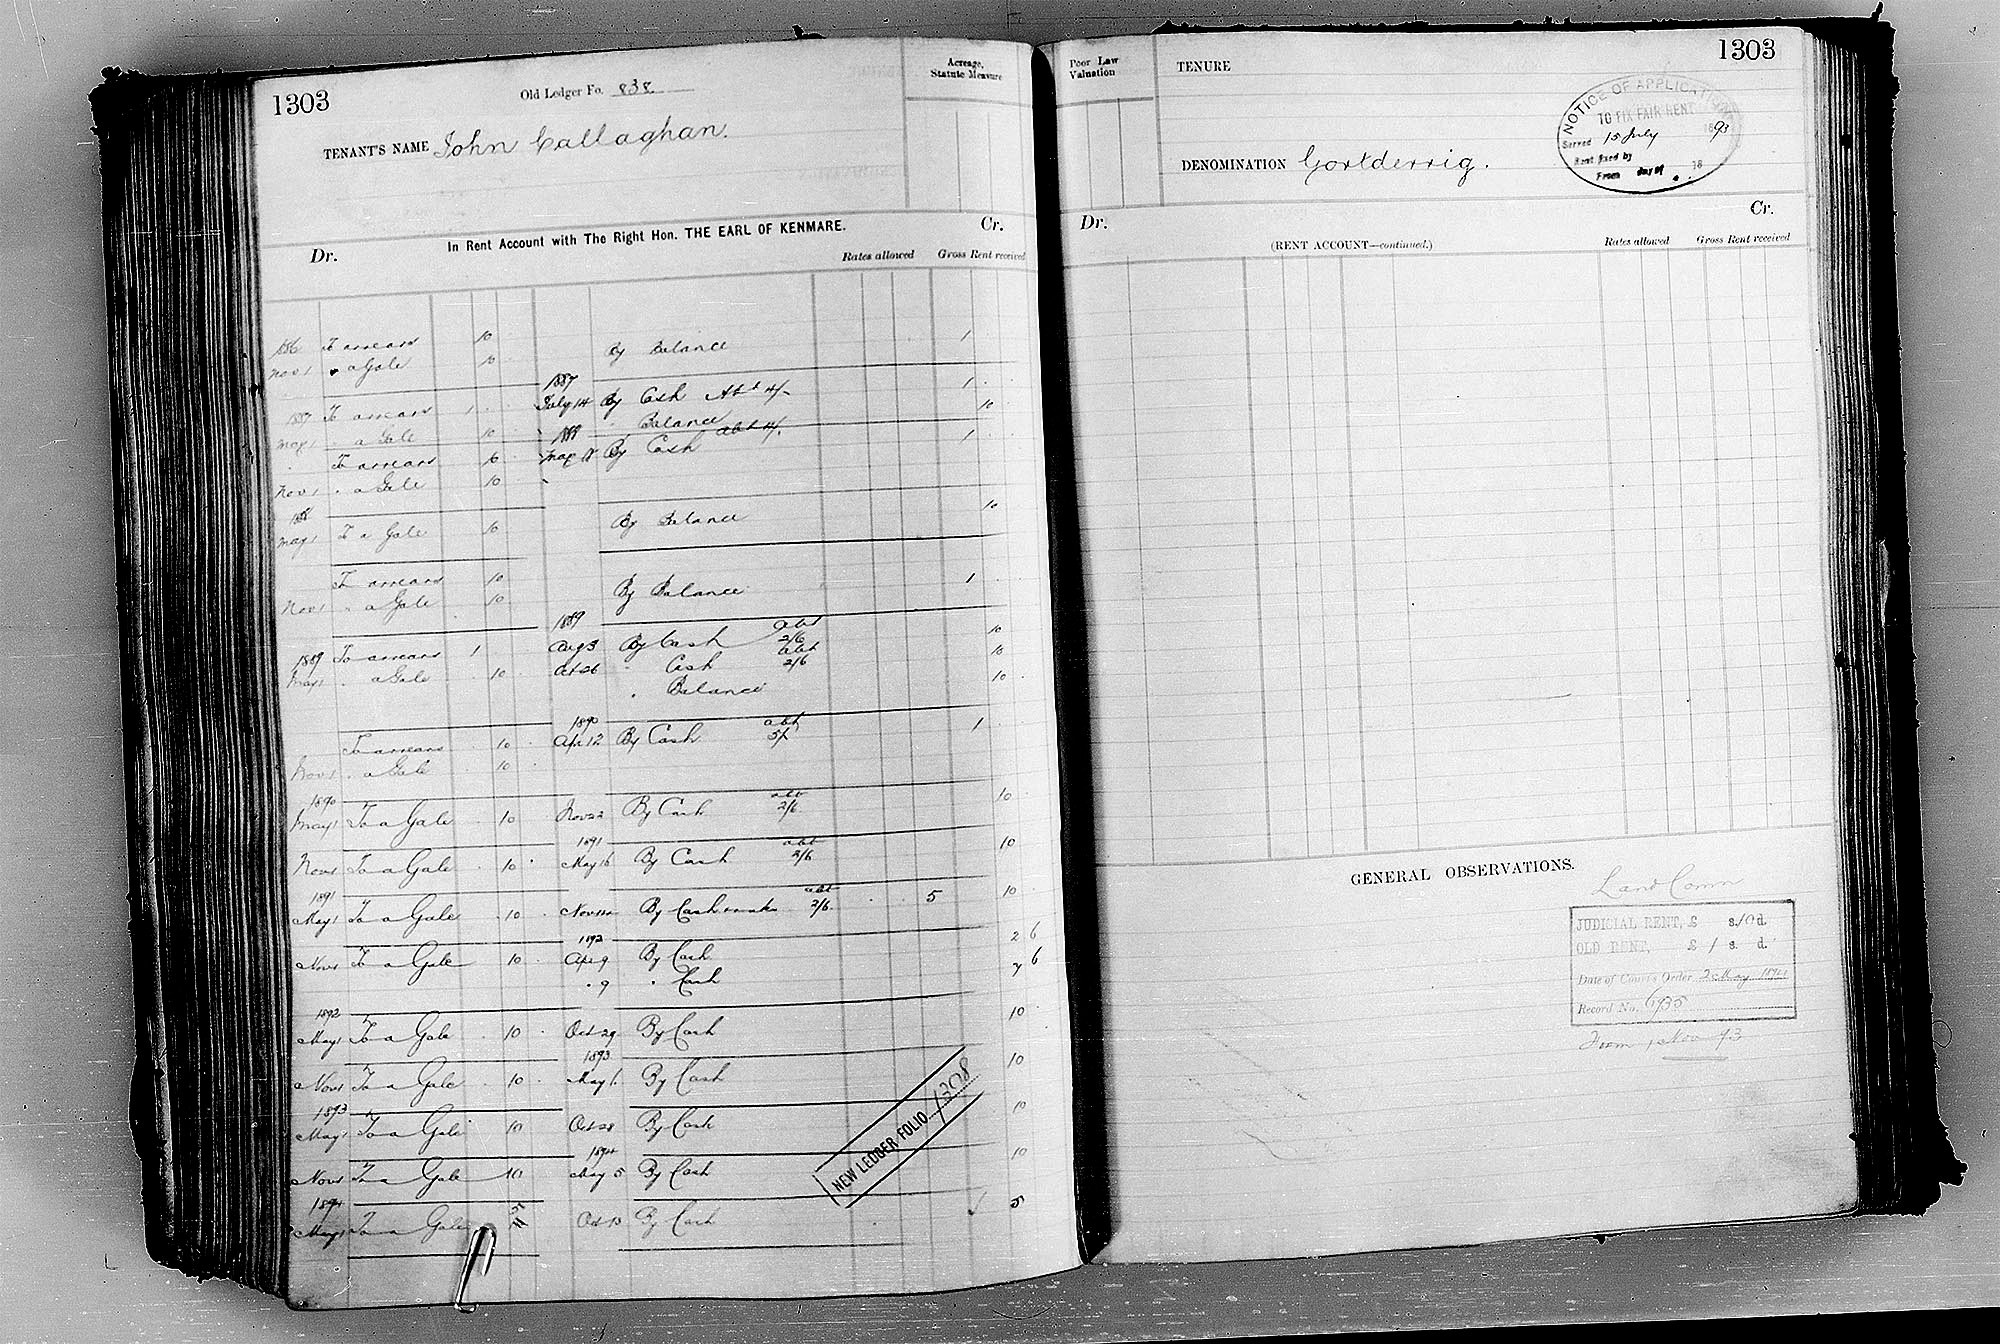 1303
Old Ledger Fo. 838
Acreage, Statute Measure
TENANT'S NAME John Callaghan.
In Rent Account with The Right Hon. THE EARL OF KENMARE.
Dr.
Cr.
Rates allowed
Gross Rent received
1886 To arrears 10 By Balance 1
Nov 1 " a Gale 10
1887
1887 To arrears 1 July 14 By Cash Abt 4/- 1
May 1 " a Gale 10 " Balance 10
1888
" To arrears 10 May 18 By Cash abt 4/. 1
Nov 1 " a Gale 10
1888
May 1 To a Gale 10 By Balance 10
To arrears 10 By Balance 1
Nov 1 " a Gale 10
1889
1889 To arrears 1 Aug 3 By Cash abt 2/6 10
May 1 " a Gale 10 Oct 26 " Cash abt 2/6 10
" Balance 10
1890
To arrears 10 Apr 12 By Cash abt 5/ 1
Nov 1 " a Gale 10
1890
May 1 To a Gale 10 Nov 22 By Cash abt 2/6 10
1891
Nov 1 To a Gale 10 May 16 By Cash abt 2/6 10
1891
May 1 To a Gale 10 Nov By Cash abt 2/6 5 10
1892
Nov 1 To a Gale 10 Apr 9 By Cash 2 6
" 9 " Cash 7 6
1892
May 1 To a Gale 10 Oct 29 By Cash 10
1893
Nov 1 To a Gale 10 May 1 By Cash 10
1893
May 1 To a Gale 10 Oct 28 By Cash 10
1894
Nov 1 To a Gale 10 May 5 By Cash 10
1894
May 1 To a Gale Oct 13 By Cash 5
NEW LEDGER FOLIO 1308
Poor Law Valuation
TENURE
1303
NOTICE OF APPLICATION
TO FIX FAIR RENT
Served 15 July 1893
Rent fixed by
From day of 18
DENOMINATION Gortderrig.
Dr.
Cr.
(RENT ACCOUNT—continued.)
Rates allowed
Gross Rent received
GENERAL OBSERVATIONS.
Land Comn
JUDICIAL RENT, £ s/10 d.
OLD RENT, £ 1 s. d.
Date of Court's Order 2 May 1894
Record No. 6935
From 1 Nov 93